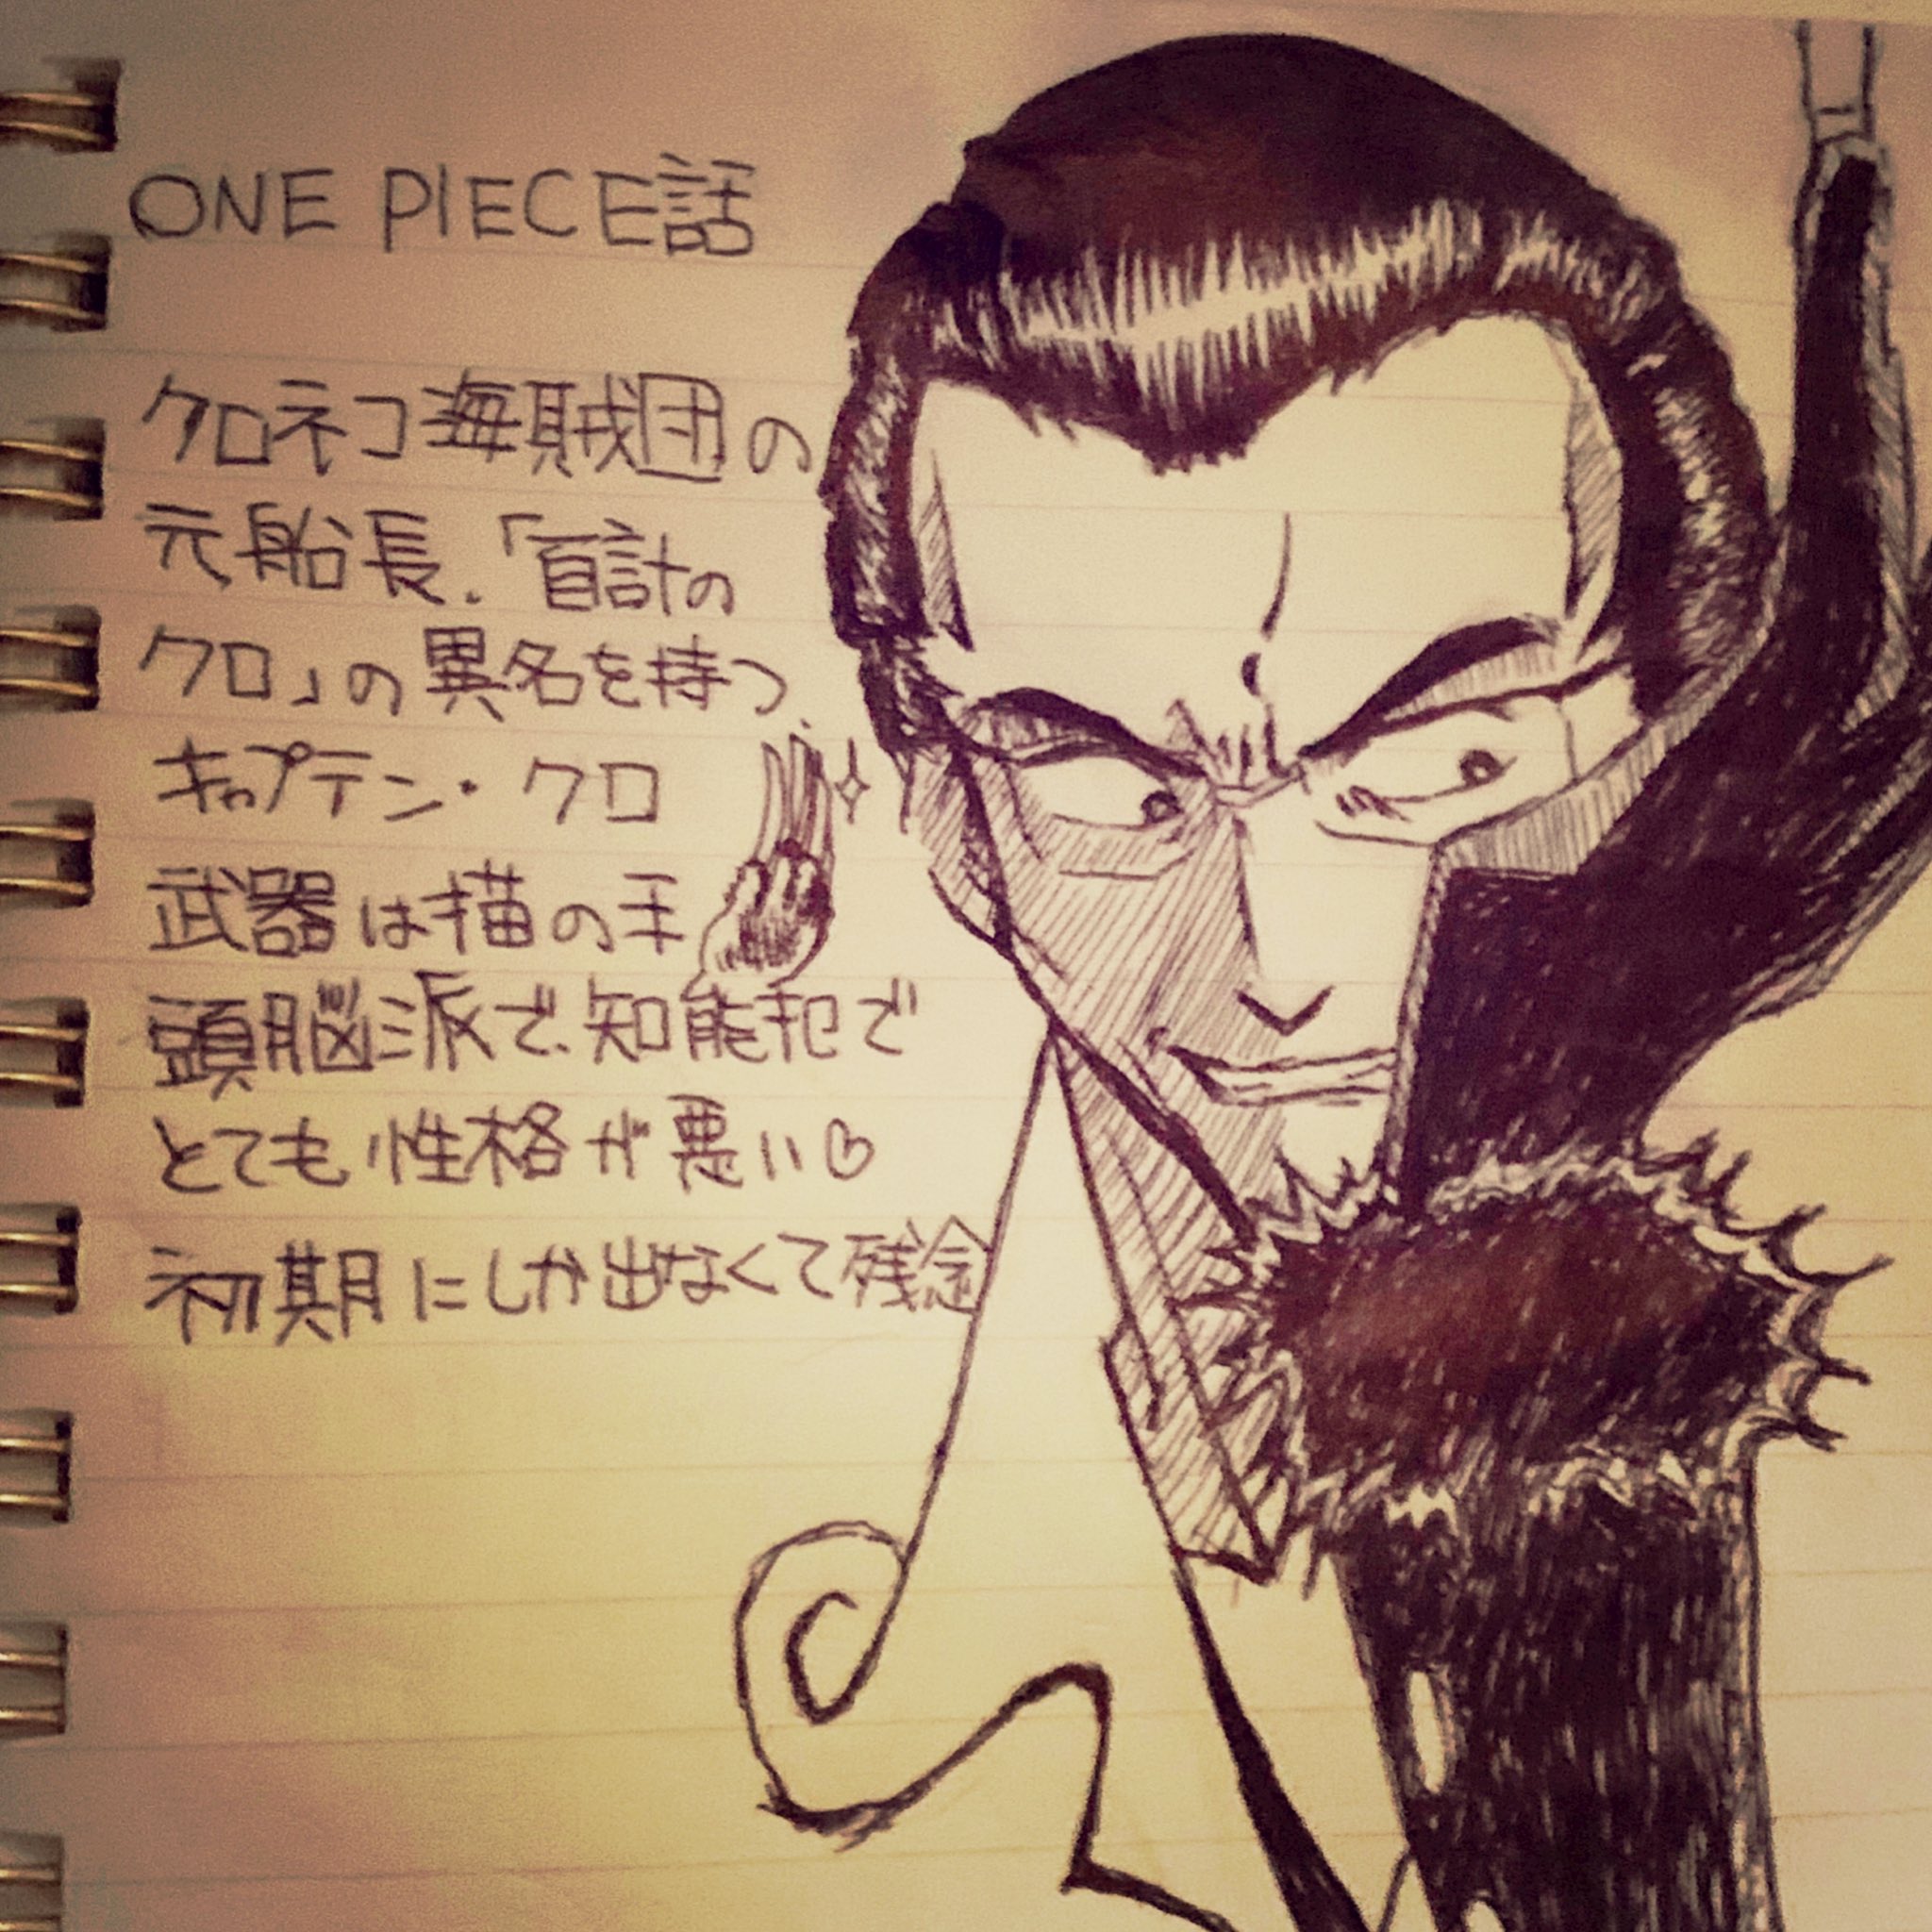 ONE PIECE話
クロネコ海賊団の
元船長.「百計の
クロ」の異名を持つ、
キャプテン・クロ
武器は猫の手
頭脳派で、知能犯で
とても性格が悪い♡
初期にしか出なくて残念